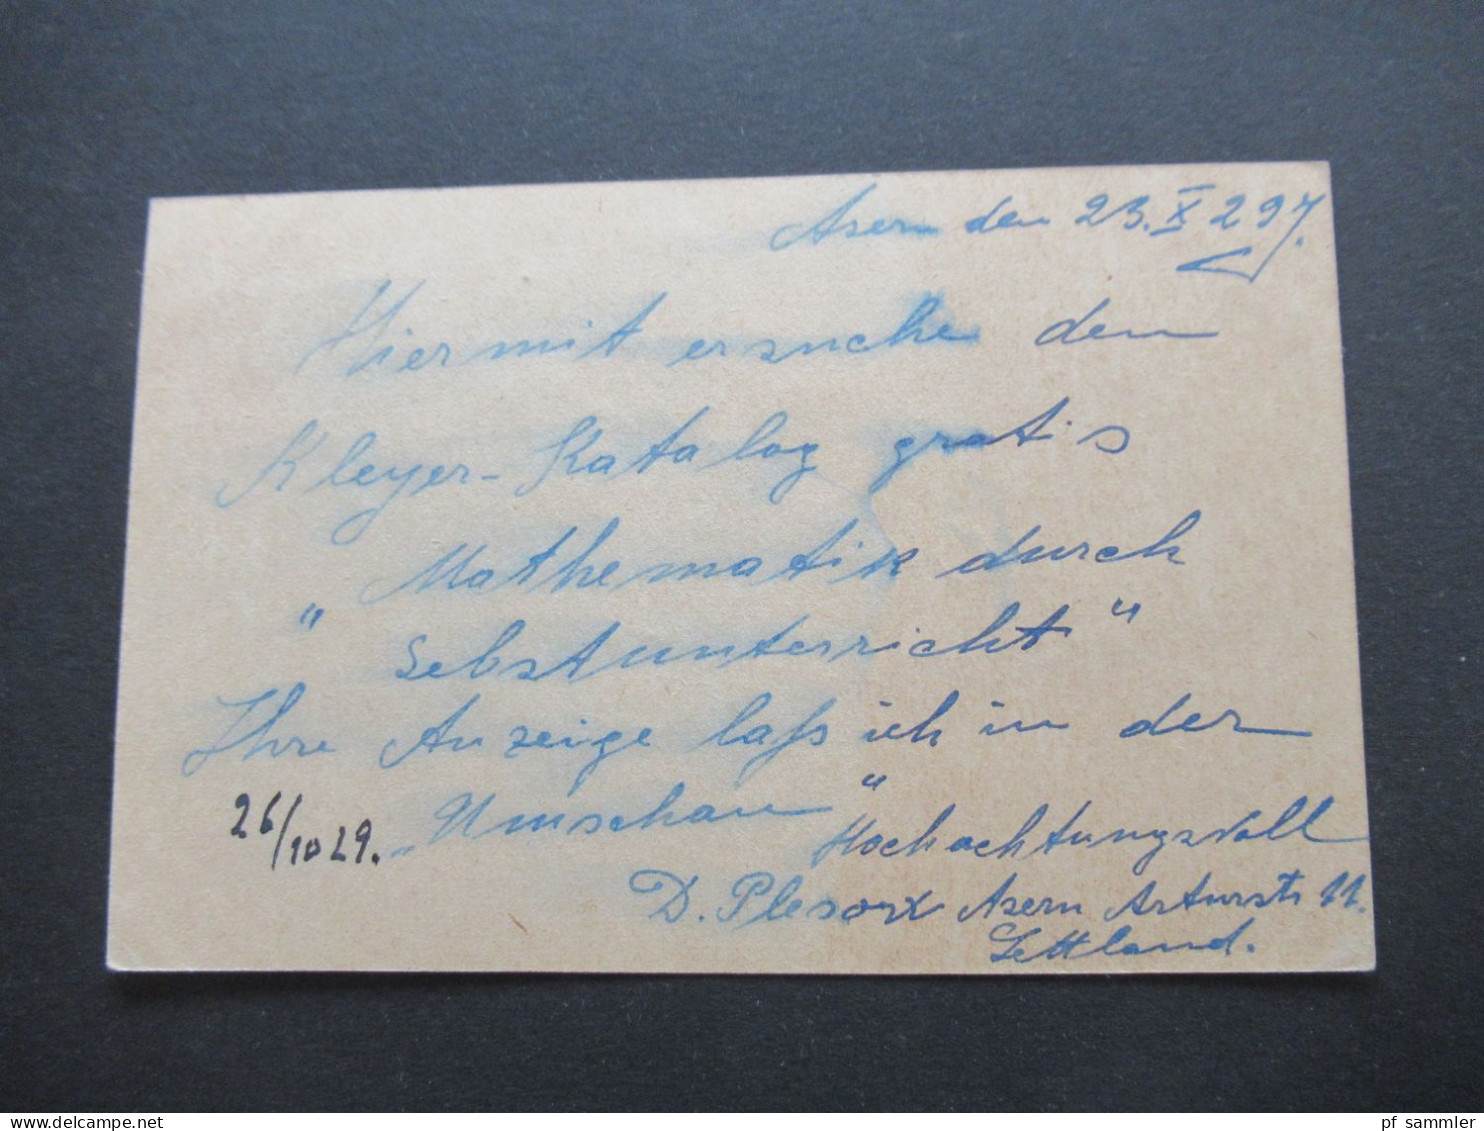 Asern den 23. X 29 J.
Hiermit ersuche den
Kleyer-Katalog gratis
Mathematik durch
" Sebstunterricht "
Ihre Anzeige laß ich in der
„Umschau"
26/10 29.
Hochachtungsvoll
D. Plesorx Asern Arturstr 11.
Lettland.
pf sammler